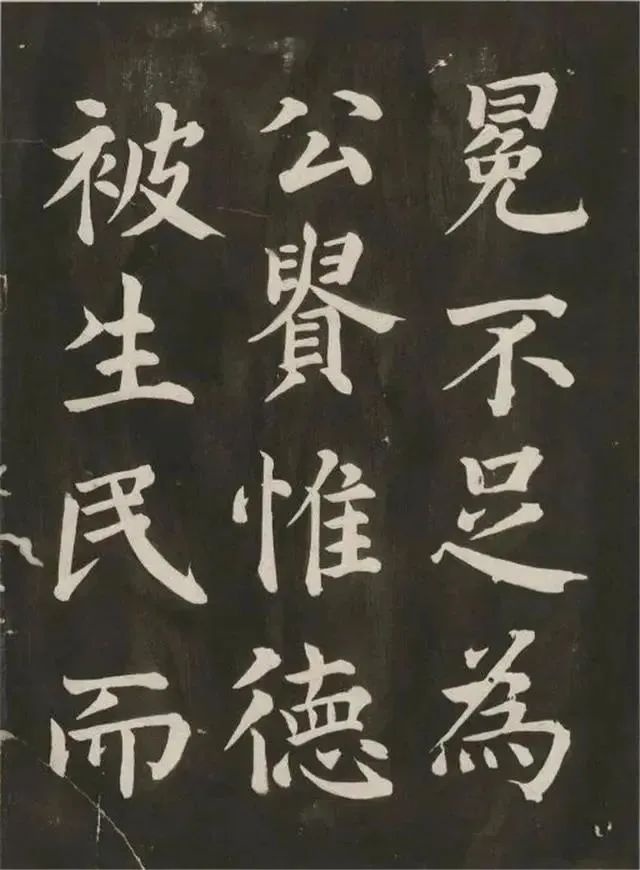 冕不足為
公貴惟德
被生民而